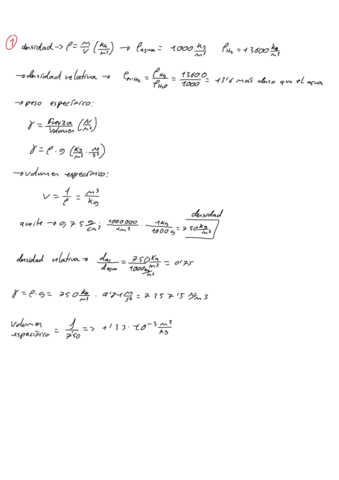 1 densidad → ρ = m/V (kg/m³) → ρagua = 1000 kg/m³ ρHg = 13600 kg/m³
→ densidad relativa → ρr-Hg = ρHg/ρH2O = 13600/1000 = 13'6 más denso que el agua
→ peso específico:
γ = Fuerza/Volumen (N/m³)
γ = ρ · g (kg/m³ · m/s²)
→ volumen específico:
v = 1/ρ = m³/kg
densidad
aceite → 0,75 g/cm³ · 1000000/1m³ · 1kg/1000g = 750 kg/m³
densidad relativa → dac/dagua = 750 kg/m³/1000 kg/m³ = 0'75
γ = ρ · g = 750 kg/m³ · 9'81 m/s² = 7357'5 N/m3
Volumen específico = 1/750 => 1'33 · 10⁻³ m³/kg